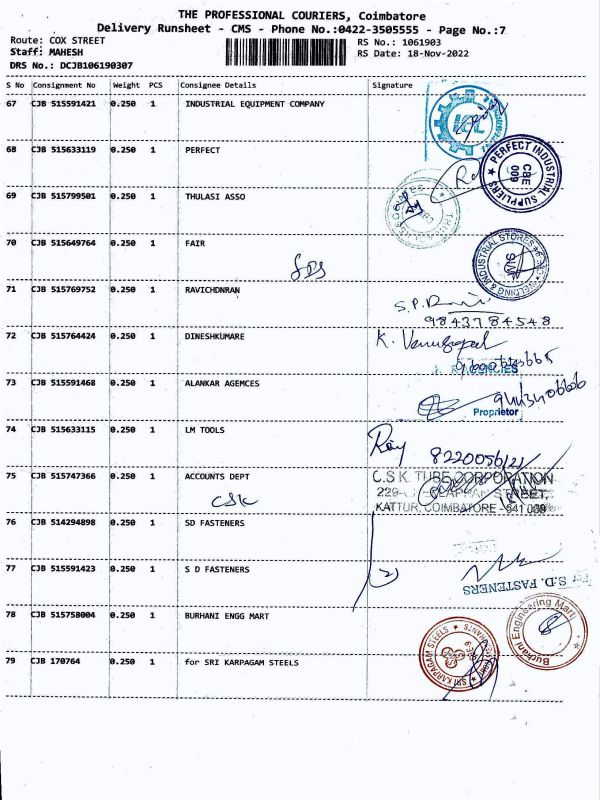 THE PROFESSIONAL COURIERS, Coimbatore
Delivery Runsheet - CMS - Phone No.:0422-3505555 - Page No.:7
Route: COX STREET
RS No.: 1061903
Staff: MAHESH
RS Date: 18-Nov-2022
DRS No.: DCJB106190307
S No Consignment No Weight PCS Consignee Details Signature
67 CJB 515591421 0.250 1 INDUSTRIAL EQUIPMENT COMPANY
68 CJB 515633119 0.250 1 PERFECT
PERFECT INDUSTRIAL SUPPLIERS
CBE
009
69 CJB 515799501 0.250 1 THULASI ASSO
70 CJB 515649764 0.250 1 FAIR
WELDING & INDUSTRIAL STORES
71 CJB 515769752 0.250 1 RAVICHDNRAN
S.P.
9843784548
72 CJB 515764424 0.250 1 DINESHKUMARE
K. Venugopal
73 CJB 515591468 0.250 1 ALANKAR AGEMCES
Proprietor
74 CJB 515633115 0.250 1 LM TOOLS
Roy
75 CJB 515747366 0.250 1 ACCOUNTS DEPT
CSK
C.S.K. TUBE CORPORATION
STREET,
KATTUR, COIMBATORE - 641 009
76 CJB 514294898 0.250 1 SD FASTENERS
77 CJB 515591423 0.250 1 S D FASTENERS
(2)
For S.D. FASTENERS
78 CJB 515758004 0.250 1 BURHANI ENGG MART
Burhani Engineering Mart
79 CJB 170764 0.250 1 for SRI KARPAGAM STEELS
SRI KARPAGAM STEELS